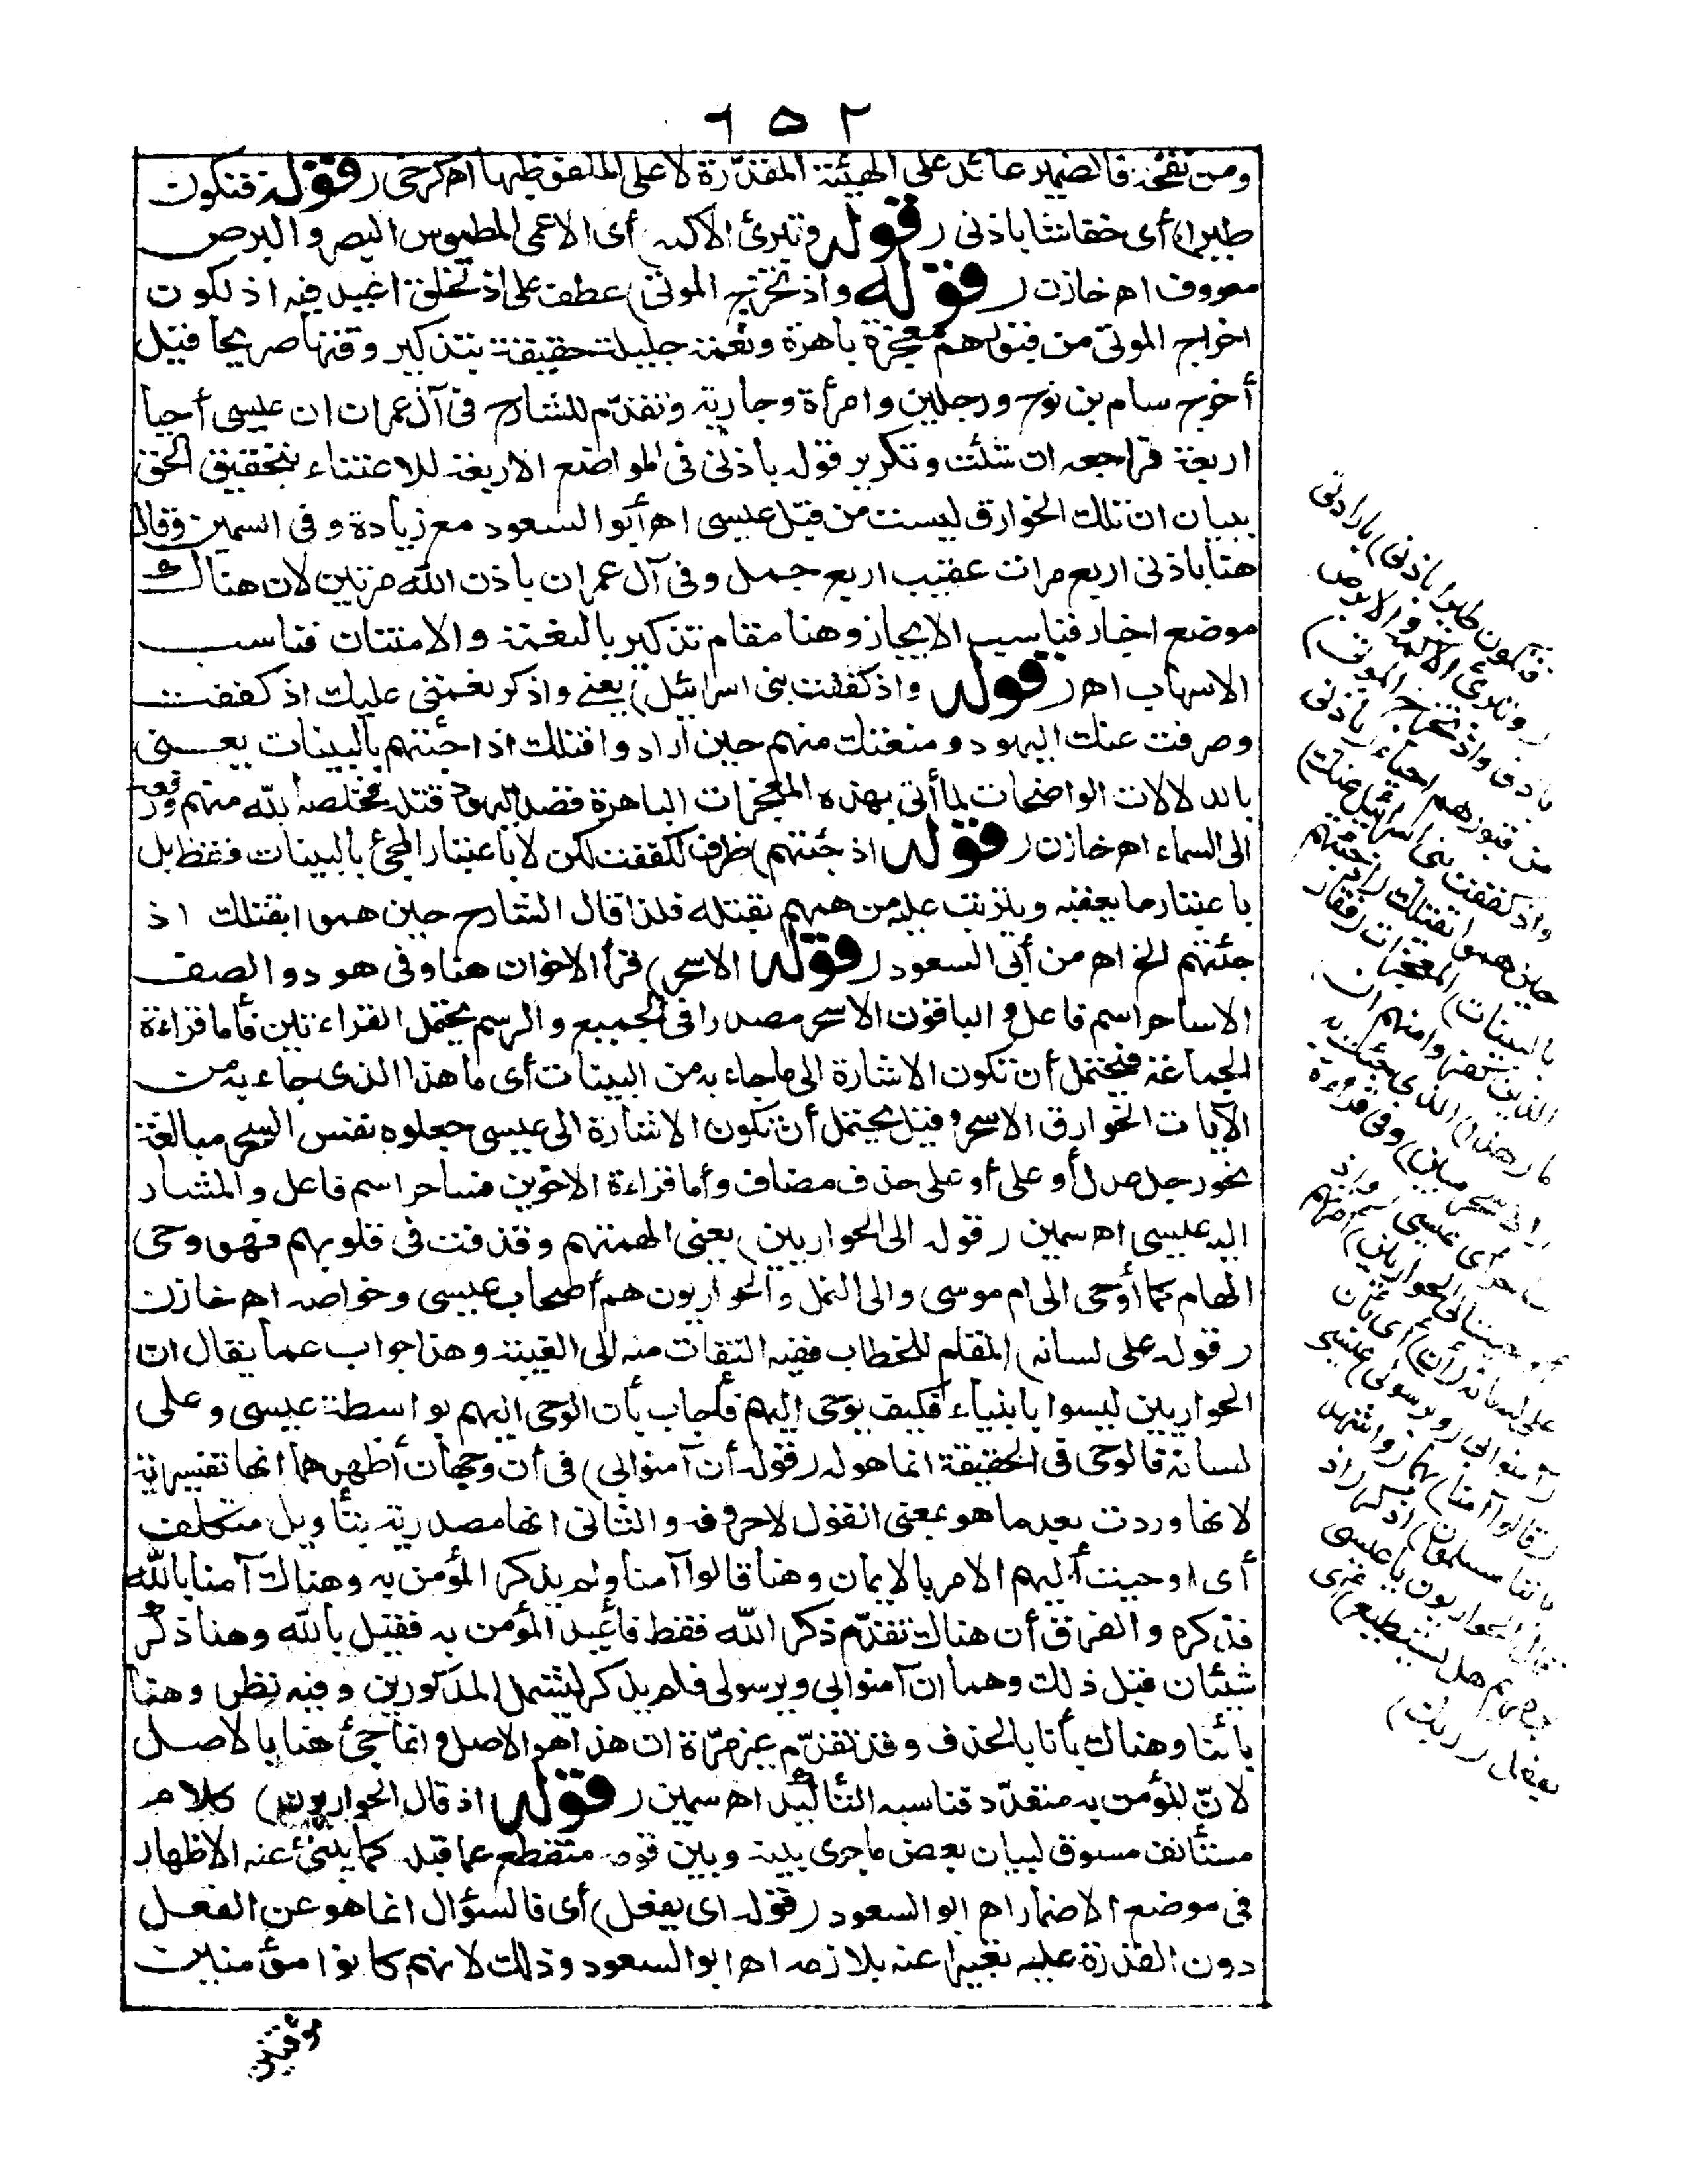 ٦٥٢
ومن نفخه فالضمير عائد على الهيئة المقدّرة لا على الملفوظ بها اهـ كرخى (قوله فتكون
طيرا) أى خفاشا باذنى (قوله وتبرئ الاكمه) أى الاعمى المطموس البصر والبرص
معروف اهـ خازن (قوله واذ تخرج الموتى) عطف على اذ تخلق أعيد فيه اذ لكون
اخراج الموتى من قبورهم معجزة باهرة ونعمة جليلة حقيقة بتذكير وقتها صريحا قيل
أخرج سام بن نوح ورجلين وامرأة وجارية وتقدّم للشارح فى آل عمران ان عيسى أحيا
اربعة فراجعه ان شئت وتكرير قوله باذنى فى المواضع الاربعة للاعتناء بتحقيق الحق
ببيان ان تلك الخوارق ليست من قبل عيسى اهـ أبو السعود مع زيادة وفى السمين وقال
هنا باذنى اربع مرات عقيب اربع جمل وفى آل عمران باذن الله مرتين لان هناك
موضع اخبار فناسب الايجاز وهنا مقام تذكير بالنعمة والامتنان فناسب
الاسهاب اهـ (قوله واذ كففت بنى اسرائيل) يعنى واذكر نعمتى عليك اذ كففت
وصرفت عنك اليهود ومنعتك منهم حين أرادوا قتلك اذ جئتهم بالبينات يعنى
بالدلالات الواضحات لما أتى بهذه المعجزات الباهرة قصد اليهود قتله فخلصه الله منهم ورفعه
الى السماء اهـ خازن (قوله اذ جئتهم) ظرف لكففت لكن لا باعتبار المجئ بالبينات فقط بل
باعتبار ما يعقبه ويترتب عليه من همهم بقتله فلذا قال الشارح حين هموا بقتلك اذ
جئتهم الخ اهـ من أبى السعود (قوله الا سحر) قرأ الاخوان هنا وفى هود والصف
الا ساحر اسم فاعل والباقون الا سحر مصدرا فى الجميع والرسم يحتمل القراءتين فأما قراءة
الجماعة فيحتمل أن تكون الاشارة الى ما جاء به من البينات أى ما هذا الذى جاء به من
الآيات الخوارق الا سحر وقيل يحتمل أن تكون الاشارة الى عيسى جعلوه نفس السحر مبالغة
نحو رجل عدل أو على أو على حذف مضاف وأما قراءة الاخوين فساحر اسم فاعل والمشار
اليه عيسى اهـ سمين (قوله الى الحواريين) يعنى الهمتهم وقذفت فى قلوبهم فهو وحى
الهام كما أوحى الى ام موسى والى النحل والحواريون هم أصحاب عيسى وخواصه اهـ خازن
(قوله على لسانه) المقام للخطاب ففيه التفات منه الى الغيبة وهذا جواب عما يقال ان
الحواريين ليسوا بانبياء فكيف يوحى اليهم فأجاب بأن الوحى اليهم بواسطة عيسى وعلى
لسانه فالوحى فى الحقيقة انما هو له (قوله أن آمنوا بى) فى أن وجهان أظهرهما انها تفسيرية
لانها وردت بعد ما هو بمعنى القول لا حروفه والثانى انها مصدرية بتأويل متكلف
أى اوحيت اليهم الامر بالايمان وهنا قالوا آمنا ولم يذكر المؤمن به وهناك آمنا بالله
فذكره والفرق أن هناك تقدّم ذكر الله فقط فأعيد المؤمن به فقيل بالله وهنا ذكر
شيئان قبل ذلك وهما ان آمنوا بى وبرسولى فلم يذكر ليشمل المذكورين وفيه نظر وهنا
بأننا وهناك بأنا بالحذف وقد تقدّم غير مرّة ان هذا هو الاصل وانما جئ هنا بالاصل
لانّ المؤمن به متعدّد فناسبه التأكيد اهـ سمين (قوله اذ قال الحواريون) كلام
مستأنف مسوق لبيان بعض ما جرى بينه وبين قومه منقطع عما قبله كما ينبئ عنه الاظهار
فى موضع الاضمار اهـ ابو السعود (قوله اى يفعل) أى فالسؤال انما هو عن الفعل
دون القدرة عليه تعبيرا عنه بلازمه اهـ ابو السعود وذلك لانهم كانوا مؤمنين
فتكون طيرا باذنى) بارادتى
(وتبرئ الاكمه والابرص
باذنى واذ تخرج الموتى)
من قبورهم احياء (باذنى
واذ كففت بنى اسرائيل عنك)
حين هموا بقتلك (اذ جئتهم
بالبينات) المعجزات (فقال
الذين كفروا منهم ان)
ما (هذا) الذى جئت به
(الا سحر مبين) وفى قراءة
ساحر أى عيسى (واذ
أوحيت الى الحواريين) أمرتهم
على لسانه (أن) أى بأن
(آمنوا بى وبرسولى) عيسى
(قالوا آمنا) بهما (واشهد
بأننا مسلمون) اذكر (اذ
قال الحواريون يا عيسى
ابن مريم هل يستطيع) أى
يفعل (ربك)